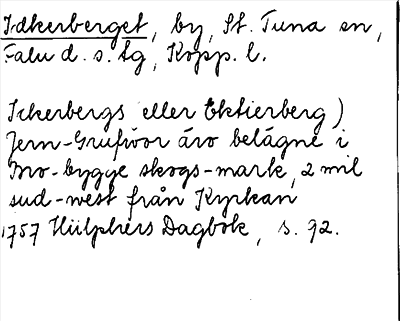 Idkerberget, by, St. Tuna sn,
Falu d. s. tg, Kopp. l.
Ickerbergs eller Ektierberg)
Jern-Grufwor äro belägne i
Mo-bygge skogs-mark, 2 mil
sud-west från Kyrkan
1757 Hülphers Dagbok, s. 92.